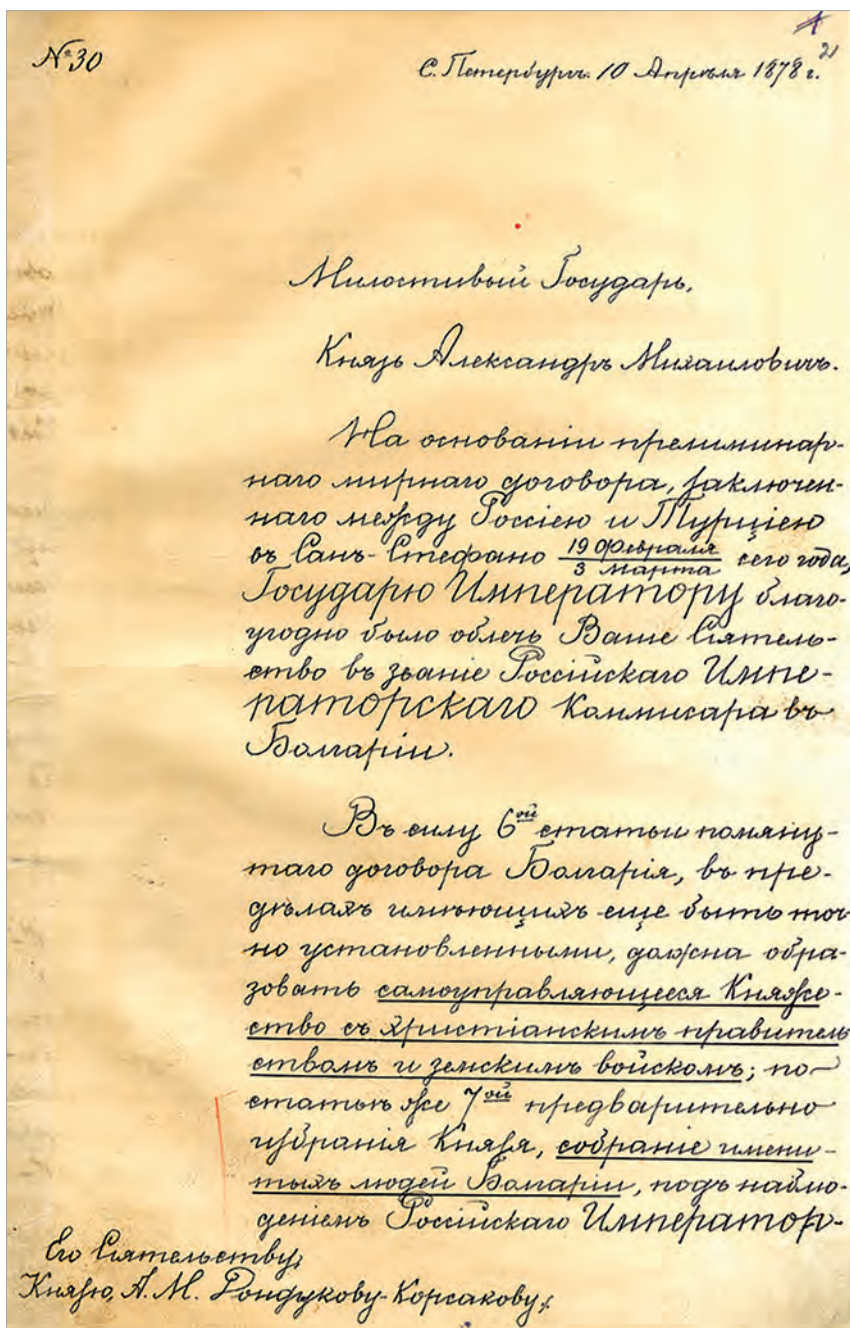 № 30
2
С. Петербургъ. 10 Апрѣля 1878 г.
Милостивый Государь,
Князь Александръ Михаиловичъ.
На основаніи прелиминар-
наго мирнаго договора, заключен-
наго между Россіею и Турціею
въ Санъ-Стефано 19 Февраля / 3 марта сего года,
Государю Императору благо-
угодно было облечь Ваше Сіятель-
ство въ званіе Россійскаго Импе-
раторскаго Коммисара въ
Болгаріи.
Въ силу 6ой статьи помяну-
таго договора Болгарія, въ пре-
дѣлахъ имѣющихъ еще быть точ-
но установленными, должна обра-
зовать самоуправляющееся Княже-
ство съ христіанскимъ правитель
ствомъ и земскимъ войскомъ; по
статьѣ же 7ой предварительно
избранія Князя, собраніе имени-
тыхъ людей Болгаріи, подъ наблю-
деніемъ Россійскаго Император-
Его Сіятельству,
Князю, А. М. Дондукову-Корсакову,